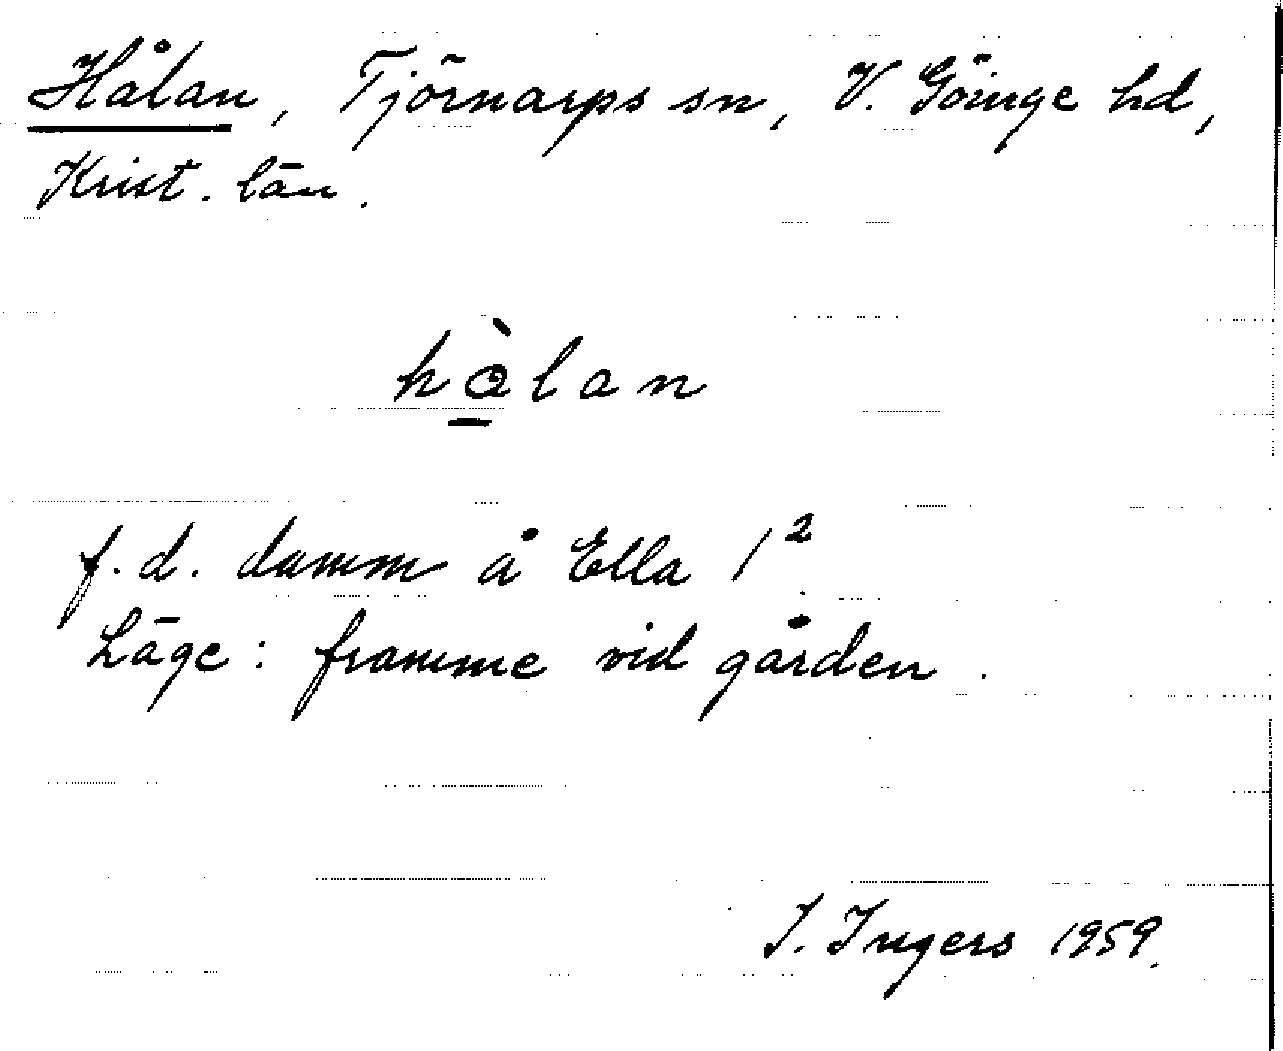 Hålan, Tjörnarps sn, V. Göinge hd,
Krist. län.
hòlan
f.d. damm å Ella 1²
Läge: framme vid gården.
I. Ingers 1959.